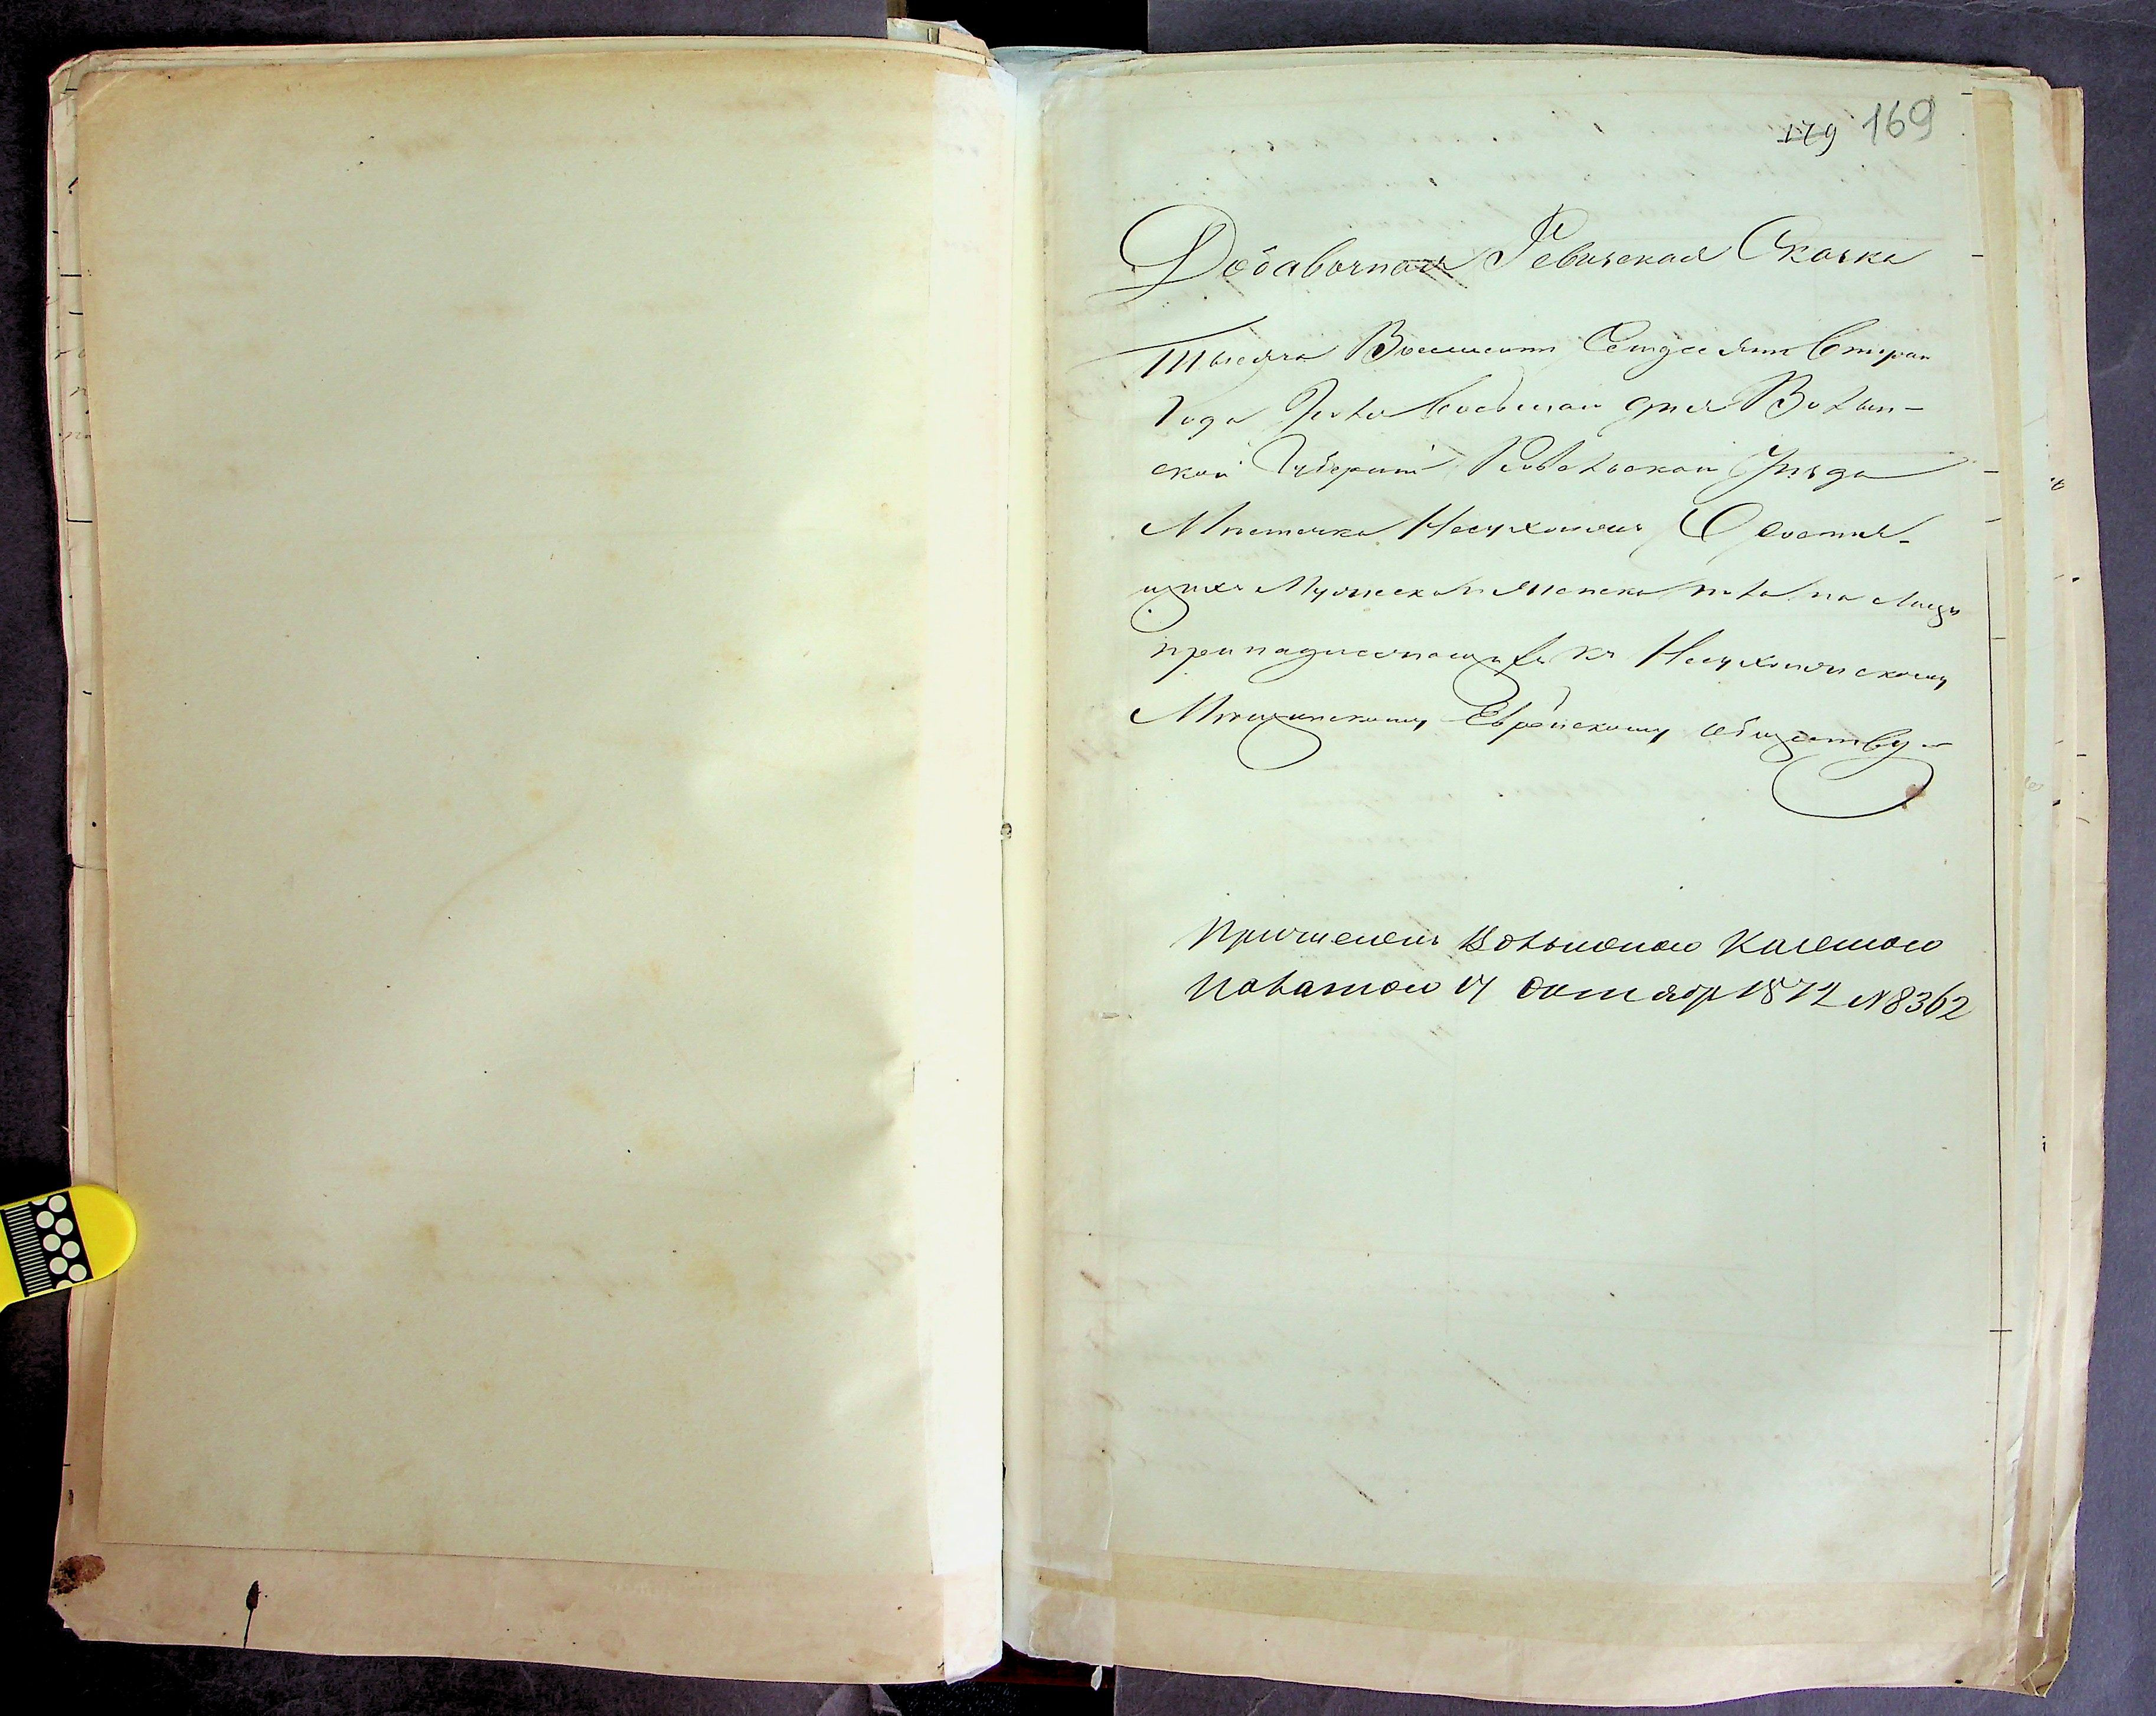 179 169
Добавочная Ревизская Сказка
Тысяча Восемьсот Семдесят Втораго
Года Июля восьмаго дня Волын-
ской Губернии Ковельскаго Уезда
Местечка Несухоижъ О состоя-
щихъ Мужеска и Женска пола на лицо
принадлежащихъ къ Несухоижскому
Мещанскому Еврейскому обществу
Причислены Волынскою Казенною
Палатою 17 Октября 1872 N 8362